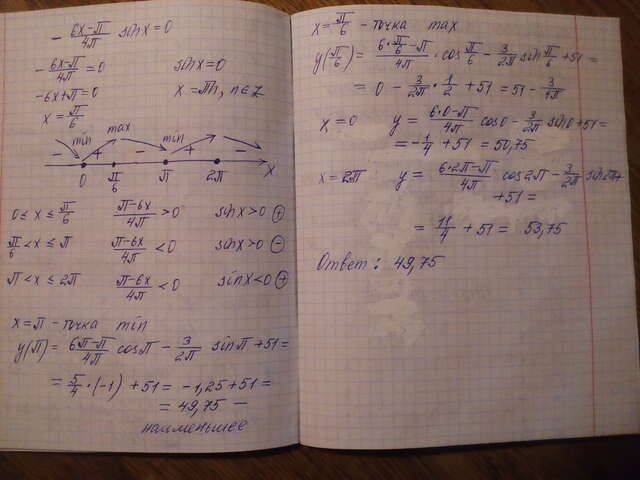 - (6x-π)/4π sinx=0
- (6x-π)/4π =0 sinx=0
-6x+π=0 x=πn, n∈Z
x=π/6
min max min
- + - +
0 π/6 π 2π x
0≤x≤π/6 (π-6x)/4π >0 sinx>0 ⊕
π/6<x≤π (π-6x)/4π <0 sinx>0 ⊖
π<x≤2π (π-6x)/4π <0 sinx<0 ⊕
x=π - точка min
y(π)= (6π-π)/4π cosπ - 3/2π sinπ+51=
= 5/4 * (-1) + 51 = -1,25+51=
= 49,75 —
наименьшее
x=π/6 - точка max
y(π/6)= (6*π/6-π)/4π · cos π/6 - 3/2π sin π/6 +51=
= 0 - 3/2π · 1/2 + 51 = 51 - 3/4π
x=0 y= (6·0-π)/4π cos0 - 3/2π sin0+51=
= -1/4 + 51 = 50,75
x=2π y= (6*2π-π)/4π cos2π - 3/2π sin2π+
+51=
= 11/4 + 51 = 53,75
Ответ: 49,75